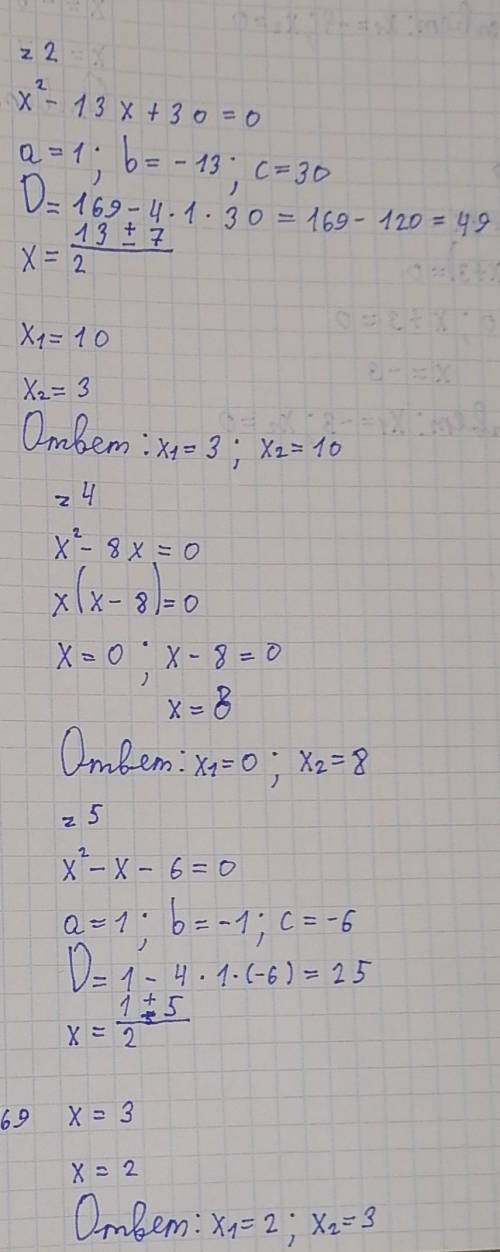 z 2
x² - 13x + 30 = 0
a = 1 ; b = -13 ; c = 30
D = 169 - 4 · 1 · 30 = 169 - 120 = 49
x = (13 ± 7)/2
x₁ = 10
x₂ = 3
Ответ : x₁ = 3 ; x₂ = 10
z 4
x² - 8x = 0
x(x - 8) = 0
x = 0 ; x - 8 = 0
x = 8
Ответ : x₁ = 0 ; x₂ = 8
z 5
x² - x - 6 = 0
a = 1 ; b = -1 ; c = -6
D = 1 - 4 · 1 · (-6) = 25
x = (1 ± 5)/2
69 x = 3
x = 2
Ответ : x₁ = 2 ; x₂ = 3